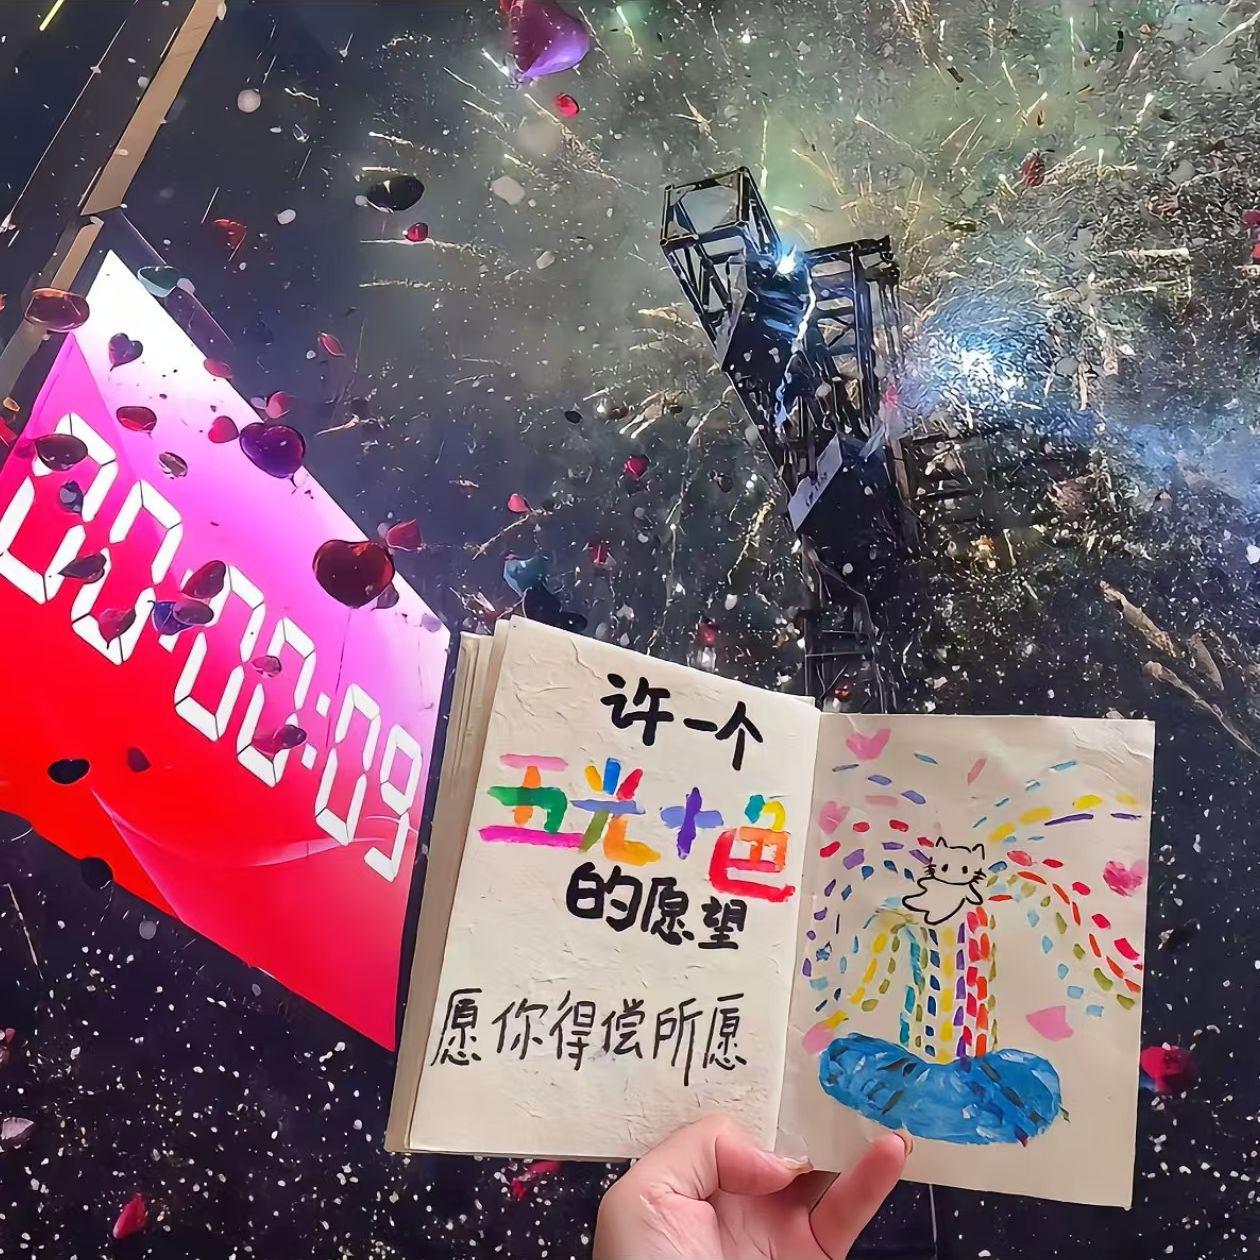 00:00:09
许一个
五光十色
的愿望
愿你得偿所愿